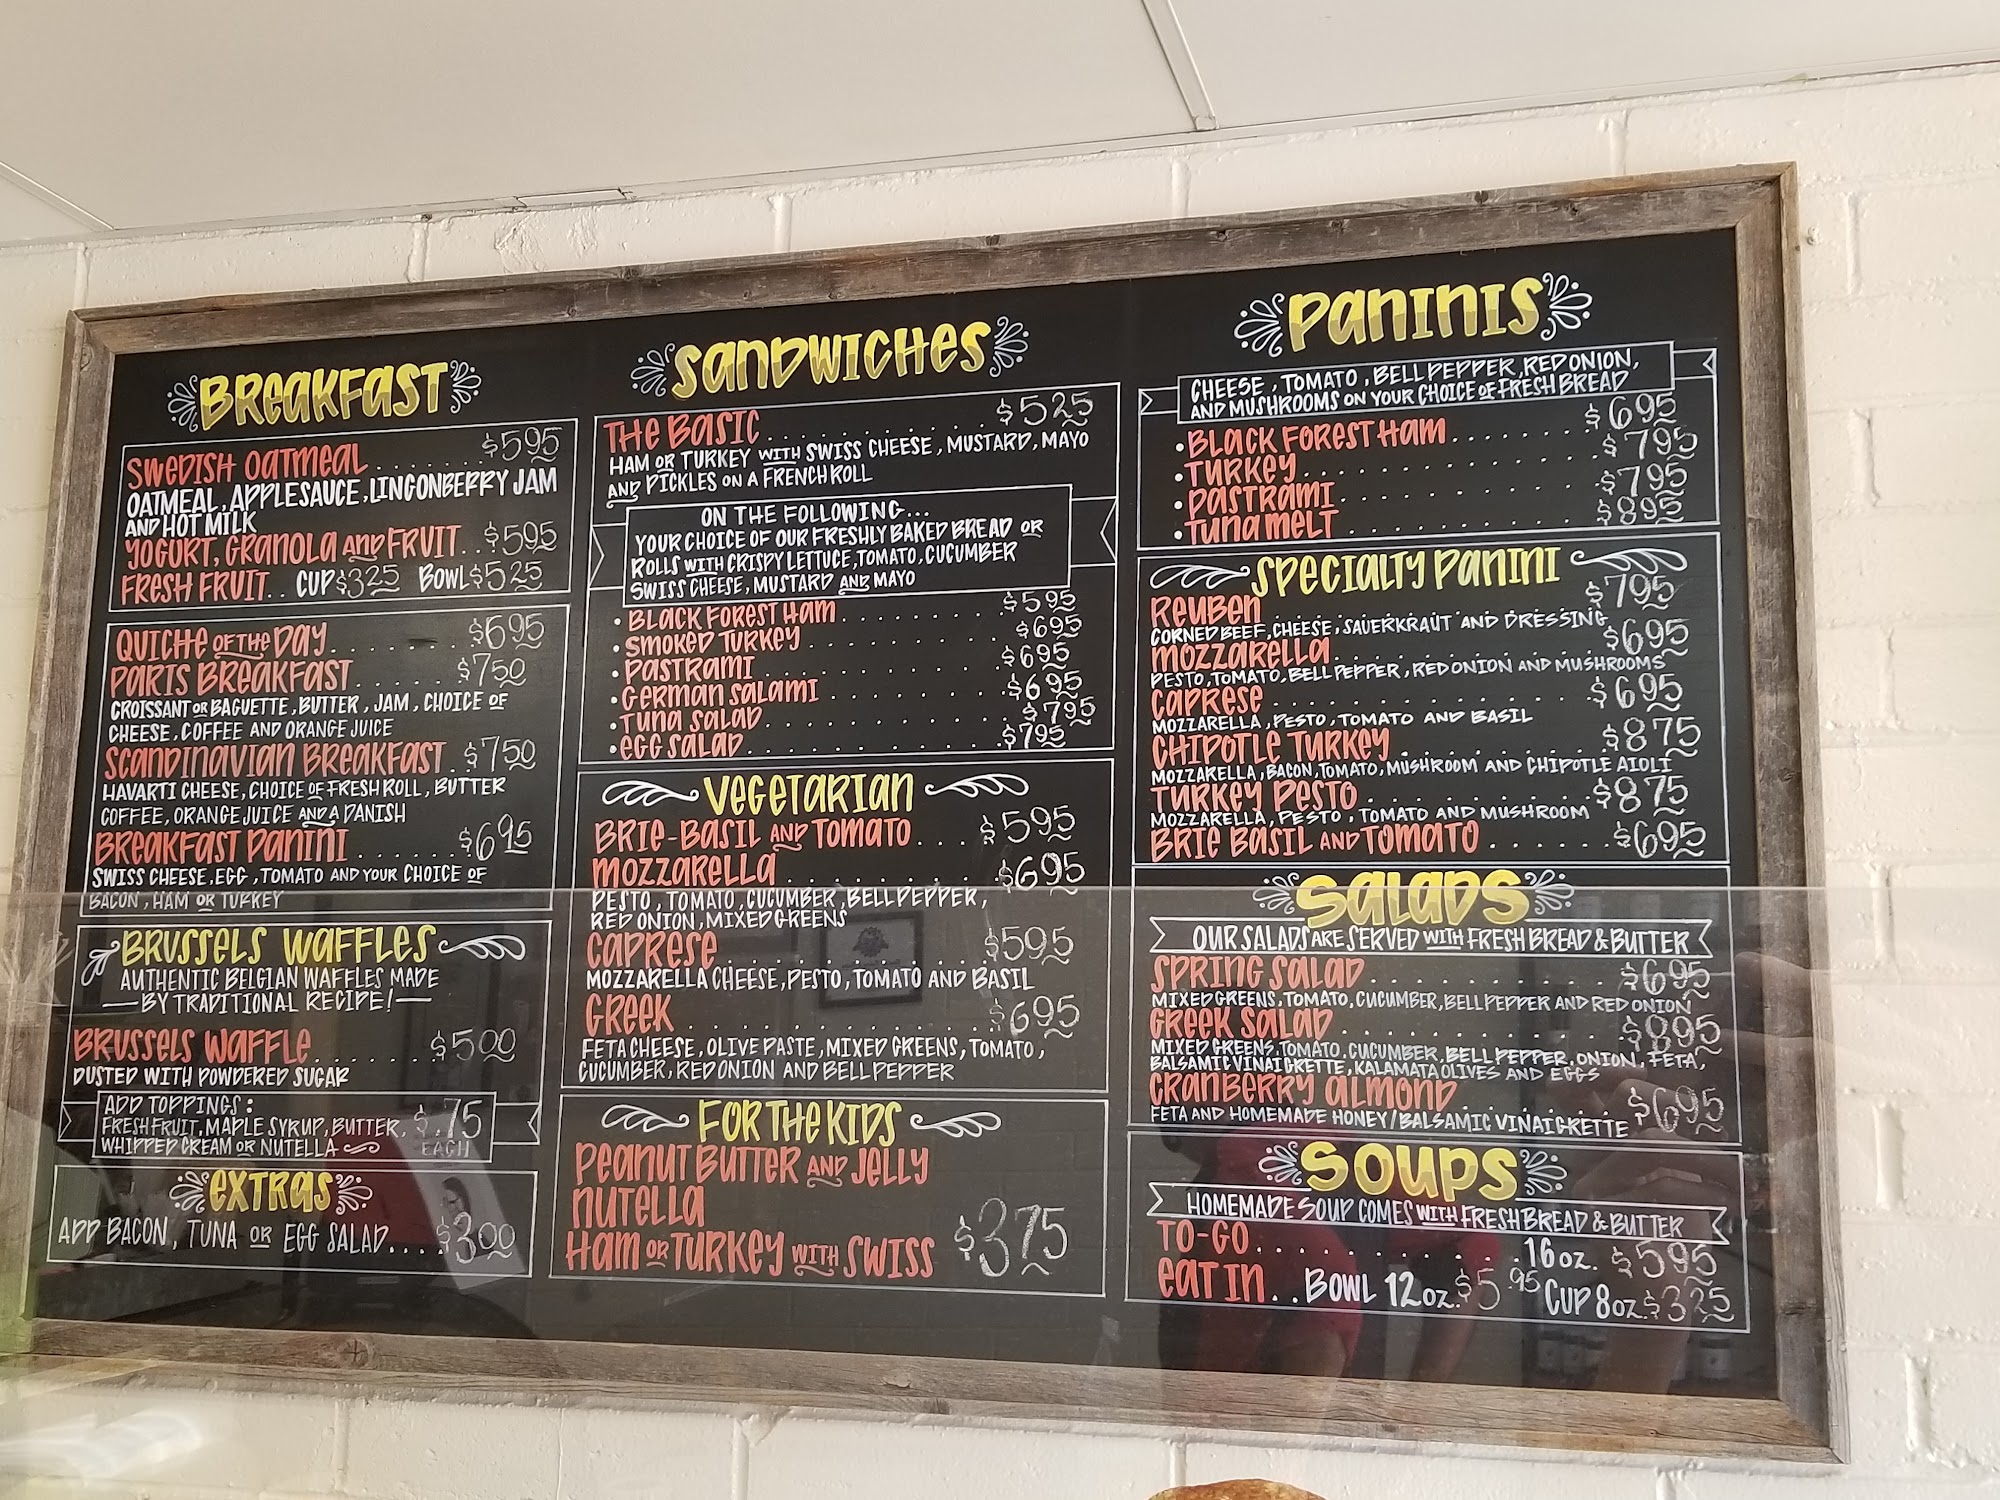 BREAKFAST
SWEDISH OATMEAL ....... $5.95
OATMEAL, APPLESAUCE, LINGONBERRY JAM
AND HOT MILK
YOGURT, GRANOLA AND FRUIT.. $5.95
FRESH FRUIT.. CUP $3.25 BOWL $5.25
QUICHE OF THE DAY....... $6.95
PARIS BREAKFAST ...... $7.50
CROISSANT OR BAGUETTE, BUTTER, JAM, CHOICE OF
CHEESE, COFFEE AND ORANGE JUICE
SCANDINAVIAN BREAKFAST . $7.50
HAVARTI CHEESE, CHOICE OF FRESH ROLL, BUTTER
COFFEE, ORANGE JUICE AND A DANISH
BREAKFAST PANINI ...... $6.95
SWISS CHEESE, EGG, TOMATO AND YOUR CHOICE OF
BACON, HAM OR TURKEY
BRUSSELS WAFFLES
AUTHENTIC BELGIAN WAFFLES MADE
— BY TRADITIONAL RECIPE! —
BRUSSELS WAFFLE....... $5.00
DUSTED WITH POWDERED SUGAR
ADD TOPPINGS:
FRESH FRUIT, MAPLE SYRUP, BUTTER, $.75
WHIPPED CREAM OR NUTELLA EACH
EXTRAS
ADD BACON, TUNA OR EGG SALAD.... $3.00
SANDWICHES
THE BASIC ............ $5.25
HAM OR TURKEY WITH SWISS CHEESE, MUSTARD, MAYO
AND PICKLES ON A FRENCH ROLL
ON THE FOLLOWING...
YOUR CHOICE OF OUR FRESHLY BAKED BREAD OR
ROLLS WITH CRISPY LETTUCE, TOMATO, CUCUMBER
SWISS CHEESE, MUSTARD AND MAYO
• BLACK FOREST HAM ......... $5.95
• SMOKED TURKEY ........... $6.95
• PASTRAMI ............. $6.95
• GERMAN SALAMI .......... $6.95
• TUNA SALAD ............. $7.95
• EGG SALAD.............. $7.95
VEGETARIAN
BRIE-BASIL AND TOMATO ... $5.95
MOZZARELLA .......... $6.95
PESTO, TOMATO, CUCUMBER, BELL PEPPER,
RED ONION, MIXED GREENS
CAPRESE ............ $5.95
MOZZARELLA CHEESE, PESTO, TOMATO AND BASIL
GREEK ............. $6.95
FETA CHEESE, OLIVE PASTE, MIXED GREENS, TOMATO,
CUCUMBER, RED ONION AND BELL PEPPER
FOR THE KIDS
PEANUT BUTTER AND JELLY
NUTELLA
HAM OR TURKEY WITH SWISS $3.75
PANINIS
CHEESE, TOMATO, BELL PEPPER, RED ONION,
AND MUSHROOMS ON YOUR CHOICE OF FRESH BREAD
• BLACK FOREST HAM....... $6.95
• TURKEY............... $7.95
• PASTRAMI ............. $7.95
• TUNA MELT ............. $8.95
SPECIALTY PANINI
REUBEN ............... $7.95
CORNED BEEF, CHEESE, SAUERKRAUT AND DRESSING
MOZZARELLA............ $6.95
PESTO, TOMATO, BELL PEPPER, RED ONION AND MUSHROOMS
CAPRESE .............. $6.95
MOZZARELLA, PESTO, TOMATO AND BASIL
CHIPOTLE TURKEY ......... $8.75
MOZZARELLA, BACON, TOMATO, MUSHROOM AND CHIPOTLE AIOLI
TURKEY PESTO .......... $8.75
MOZZARELLA, PESTO, TOMATO AND MUSHROOM
BRIE BASIL AND TOMATO ...... $6.95
SALADS
OUR SALADS ARE SERVED WITH FRESH BREAD & BUTTER
SPRING SALAD ........... $6.95
MIXED GREENS, TOMATO, CUCUMBER, BELL PEPPER AND RED ONION
GREEK SALAD ............ $8.95
MIXED GREENS, TOMATO, CUCUMBER, BELL PEPPER, ONION, FETA,
BALSAMIC VINAIGRETTE, KALAMATA OLIVES AND EGGS
CRANBERRY ALMOND ....... $6.95
FETA AND HOMEMADE HONEY/BALSAMIC VINAIGRETTE
SOUPS
HOMEMADE SOUP COMES WITH FRESH BREAD & BUTTER
TO-GO............. 16 OZ. $5.95
EAT IN.. BOWL 12 OZ. $5.95 CUP 8 OZ. $3.25